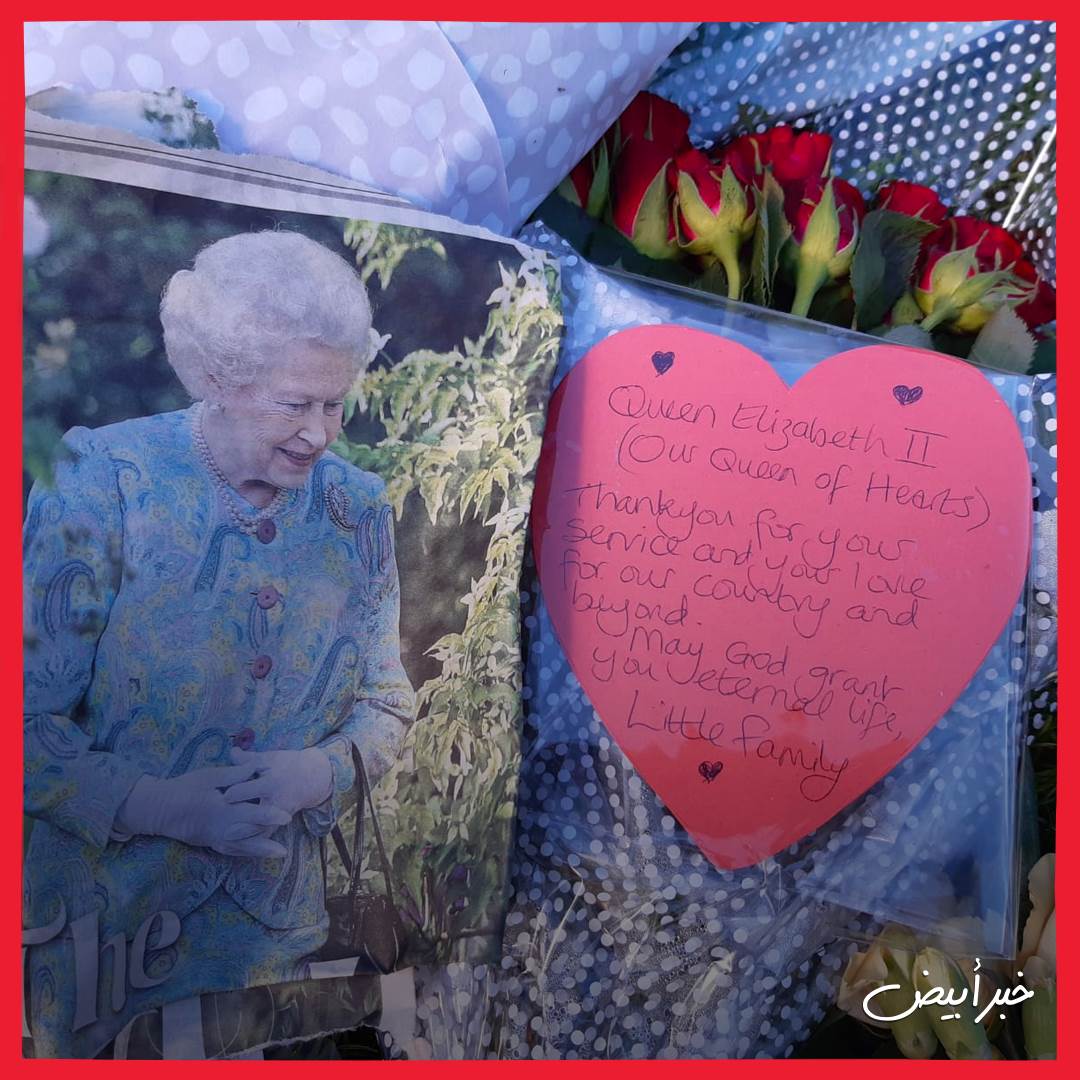 Queen Elizabeth II
(Our Queen of Hearts)
Thankyou for your
service and your love
for our country and
beyond.
May God grant
you eternal life,
Little family
The
خبر أبيض